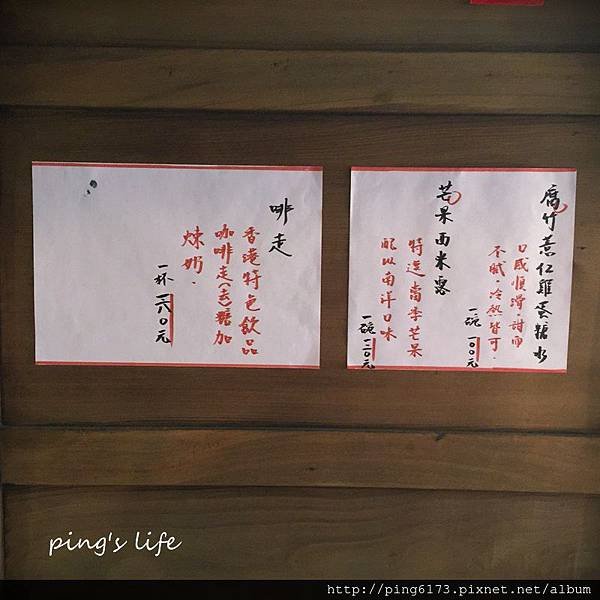 腐竹薏仁雞蛋糖水
口感順滑．甜而
不膩．冷熱皆可．
一碗 一００元
芒果西米露
特選當季芒果
配以南洋口味
一碗 一二０元
啡走
香港特色飲品
咖啡走(去)糖加
煉奶．
一杯 一八０元
ping's life
http://ping6173.pixnet.net/album